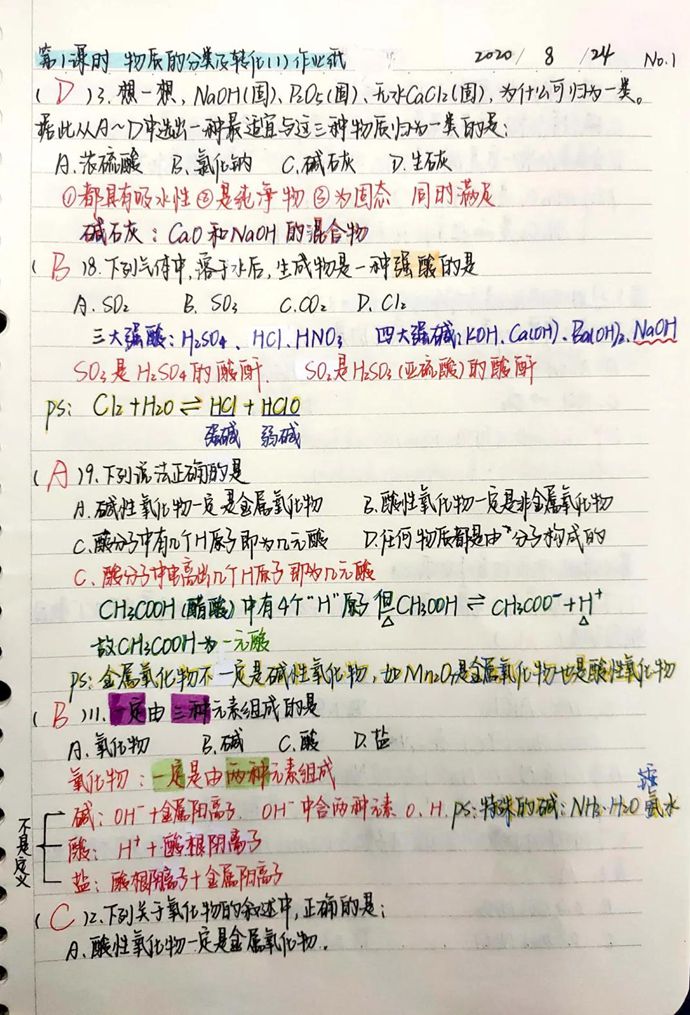 第1课时 物质的分类及转化(1)作业纸 2020 / 8 / 24 No.1
( D )3.想一想, NaOH(固)、P2O5(固)、无水CaCl2(固), 为什么可归为一类。
据此从A~D中选出一种最适宜与这三种物质归为一类的是:
A.浓硫酸 B.氯化钠 C.碱石灰 D.生石灰
①都具有吸水性②是纯净物③为固态 同时满足
碱石灰: CaO和NaOH的混合物
( B )8.下列气体中,溶于水后,生成物是一种强酸的是
A.SO2 B.SO3 C.CO2 D.Cl2
三大强酸: H2SO4、HCl、HNO3 四大强碱: KOH、Ca(OH)、Ba(OH)2、NaOH
SO3是H2SO4的酸酐. SO2是H2SO3(亚硫酸)的酸酐
ps: Cl2+H2O⇌HCl+HClO
强碱 弱碱
( A )9.下列说法正确的是
A.碱性氧化物一定是金属氧化物 B.酸性氧化物一定是非金属氧化物
C.酸分子中有几个H原子即为几元酸 D.任何物质都是由"分子构成的
C.酸分子中电离出几个H原子即为几元酸
CH3COOH(醋酸)中有4个"H"原子 但CH3OOH⇌CH3COO⁻+H⁺
故CH3COOH为一元酸
ps:金属氧化物不一定是碱性氧化物,如Mn2O7是金属氧化物也是酸性氧化物
( B )11.一定由三种元素组成的是
A.氧化物 B.碱 C.酸 D.盐
氧化物:一定是由两种元素组成
碱: OH⁻+金属阳离子. OH⁻中含两种元素 O、H. ps:特殊的碱: NH3·H2O 氨水
酸: H⁺+酸根阴离子
盐: 酸根阴离子+金属阳离子
不是定义
( C )12.下列关于氧化物的叙述中,正确的是:
A.酸性氧化物一定是金属氧化物.